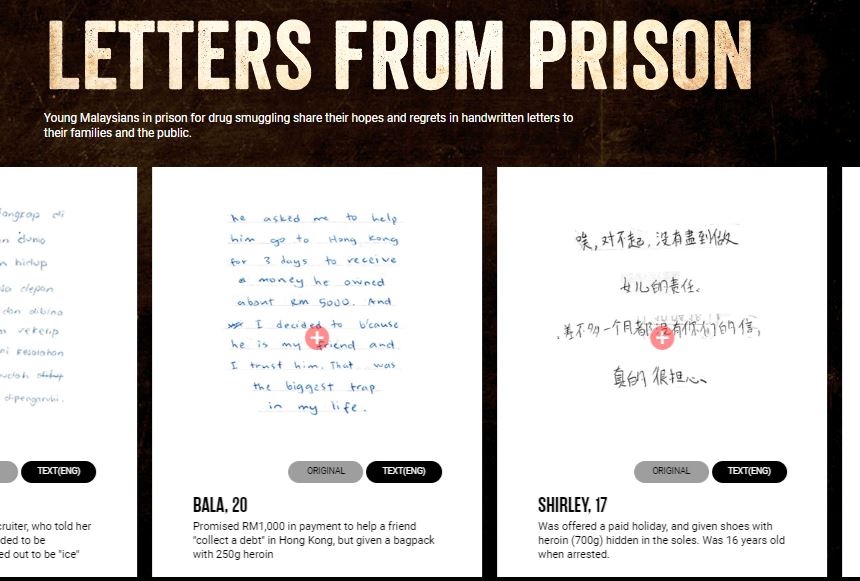 LETTERS FROM PRISON
Young Malaysians in prison for drug smuggling share their hopes and regrets in handwritten letters to
their families and the public.
di
dunia
hidup
depan
dan dibina
kesalahan
dipengaruhi.
TEXT(ENG)
cruiter, who told her
ded to be
ed out to be "ice"
he asked me to help
him go to Hong Kong
for 3 days to receive
a money he owned
about RM 5000. And
I decided to b'cause
he is my friend and
I trust him. That was
the biggest trap
in my life.
ORIGINAL
TEXT(ENG)
BALA, 20
Promised RM1,000 in payment to help a friend
"collect a debt" in Hong Kong, but given a bagpack
with 250g heroin
唉,对不起,没有盡到做
女儿的责任。
差不多一个月都没有你们的信,
真的很担心。
ORIGINAL
TEXT(ENG)
SHIRLEY, 17
Was offered a paid holiday, and given shoes with
heroin (700g) hidden in the soles. Was 16 years old
when arrested.